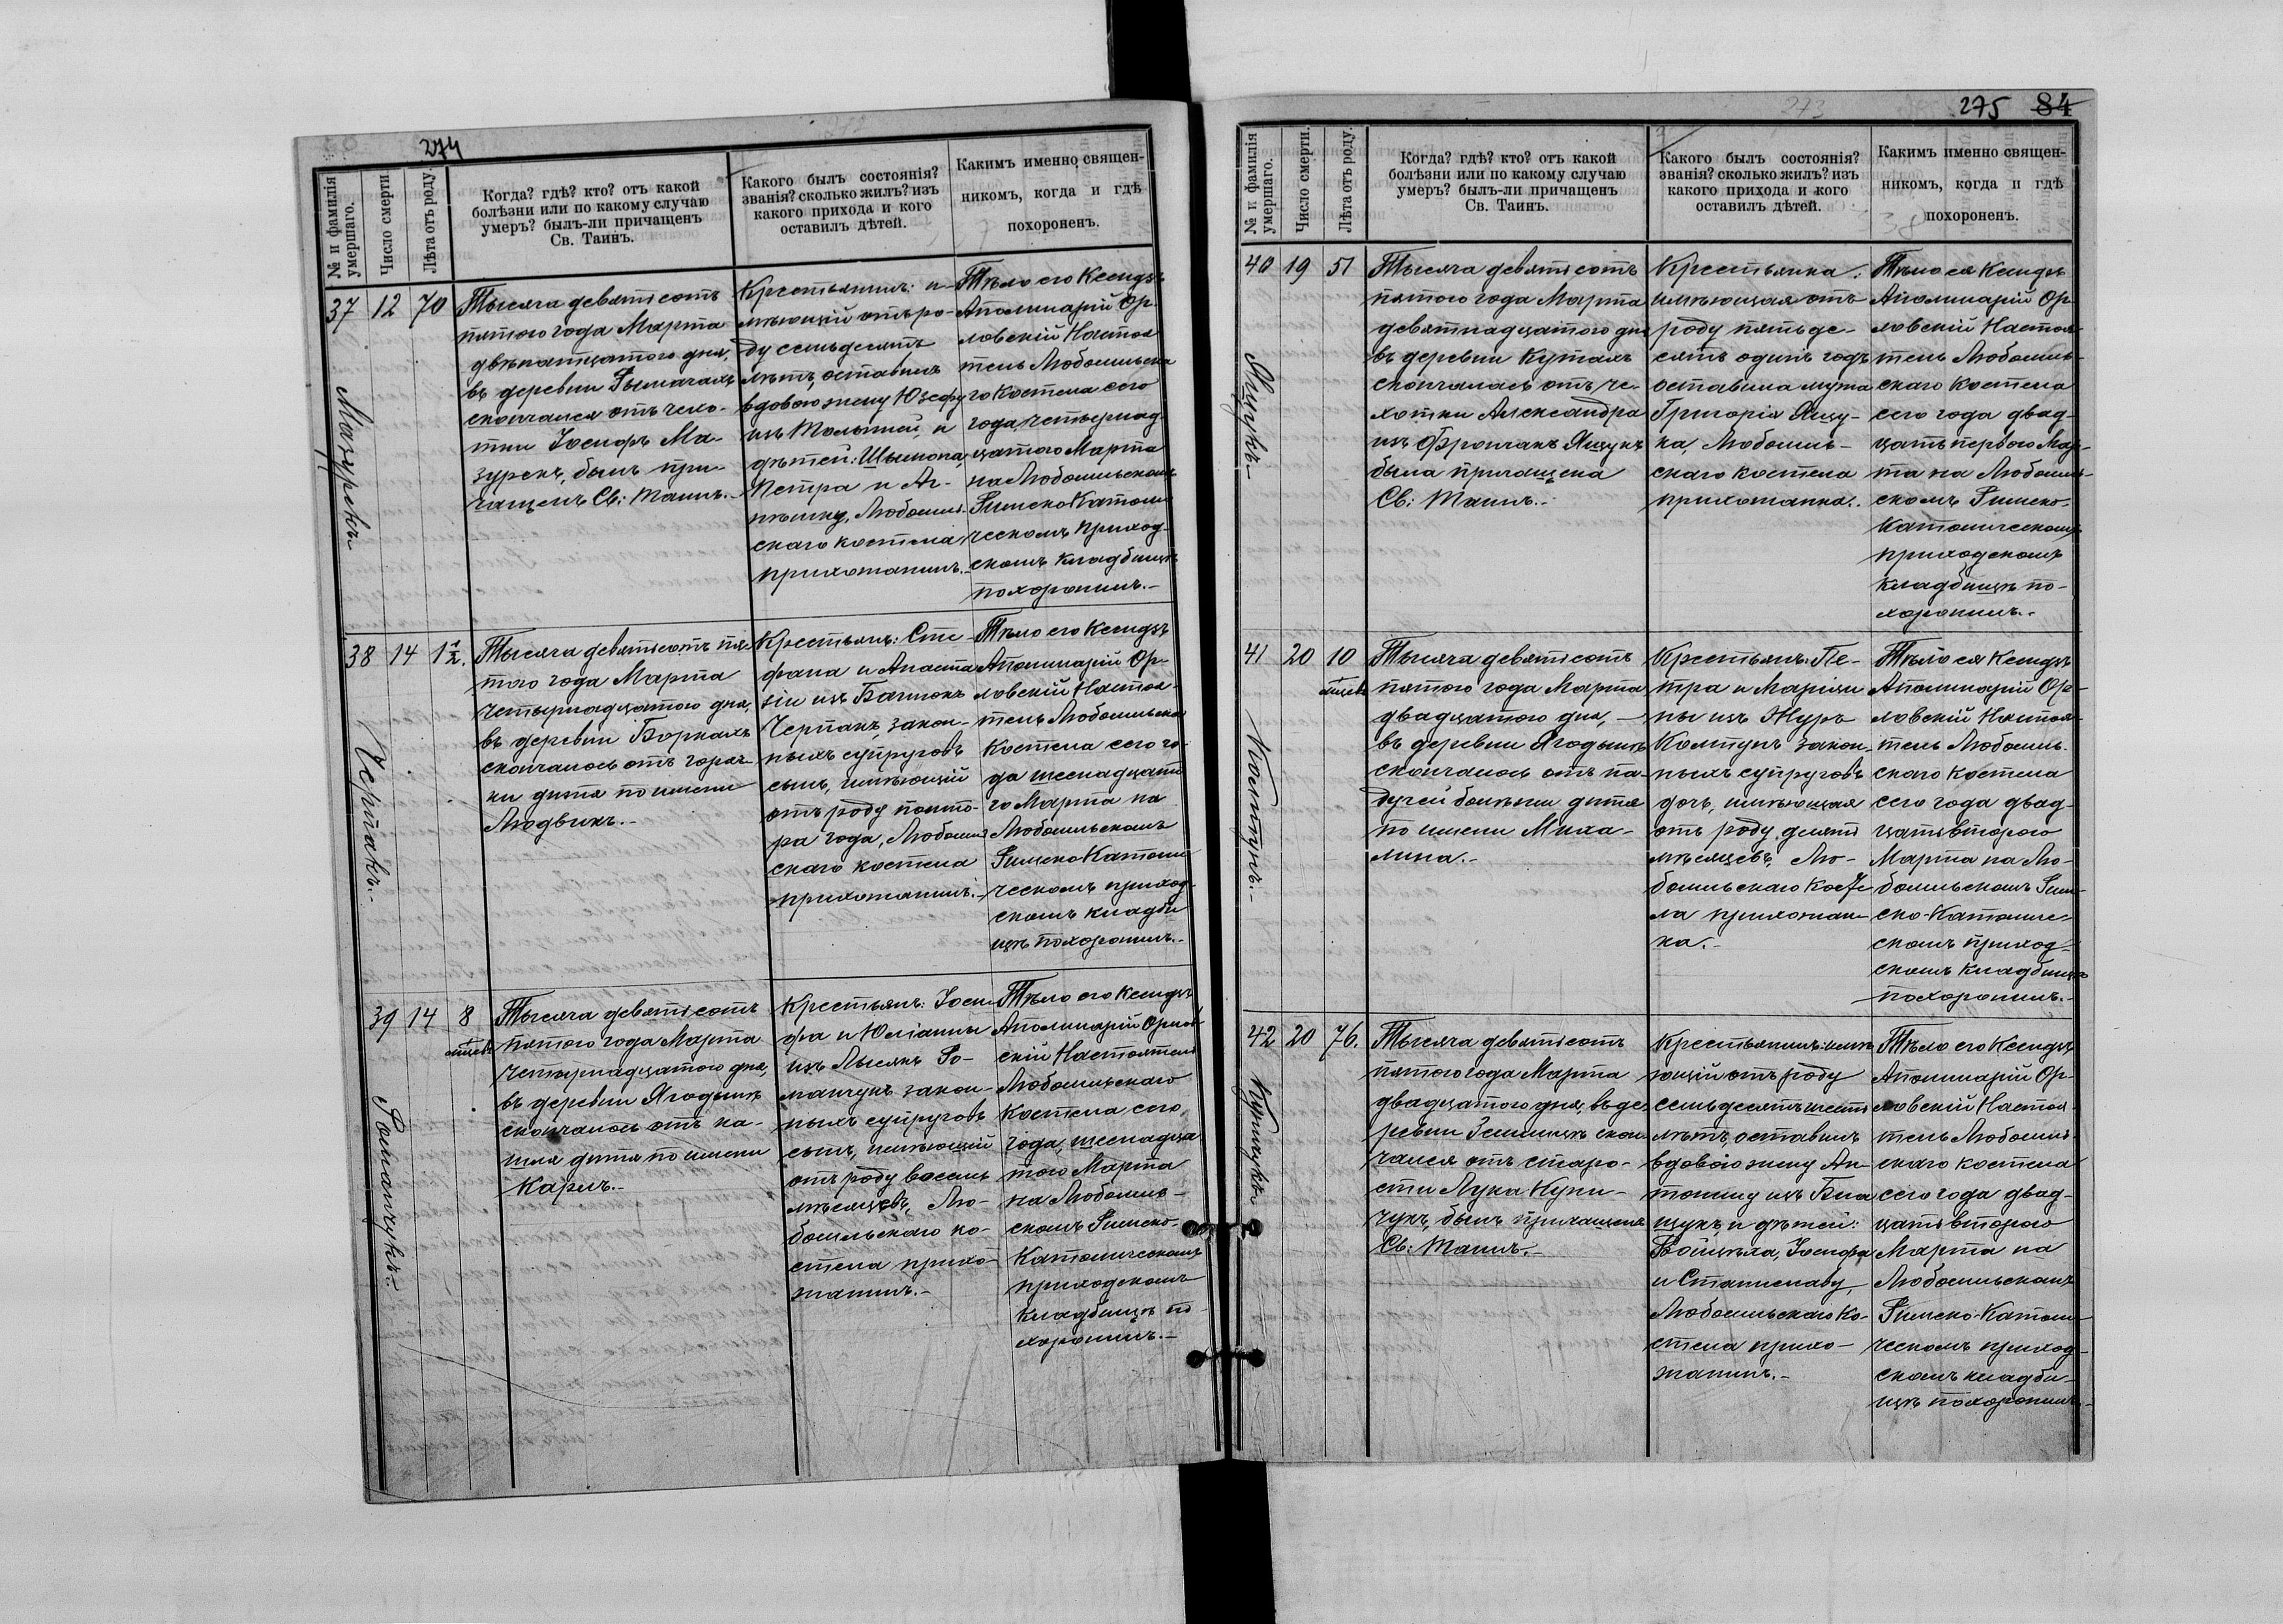 274
№ и фамилія умершаго.
Число смерти.
Лѣта отъ роду.
Когда? гдѣ? кто? отъ какой
болѣзни или по какому случаю
умеръ? былъ-ли причащенъ
Св. Таинъ.
Какого былъ состоянія?
званія? сколько жилъ? изъ
какого прихода и кого
оставилъ дѣтей.
Какимъ именно священ-
никомъ, когда и гдѣ
похороненъ.
37 12 70
Мазурекъ
Тысяча девятьсотъ
пятого года Марта
двѣнатцатого дня,
въ деревни Рымачахъ
скончался отъ чехо-
тки Іосифъ Ма-
зурекъ, былъ при-
чащенъ Св: Таинъ.-
Крестьянинъ: и-
мѣющій отъ ро-
ду семьдесятъ
лѣтъ, оставилъ
вдовою жену Юзефу
изъ и
дѣтей: Шымона,
Петра и Аг-
нѣшку, Любомль-
скаго костела
прихожанинъ.-
Тѣло его Ксендзъ
Аполинарій Ор-
ловскій Настоя
тель Любомльска
го Костела сего
года, четырнад-
цатого Марта
на Любомльскомъ
Римско Католи
ческомъ приход-
скомъ кладбищѣ
похоронилъ.-
38 14 1½.
Черпакъ.-
Тысяча девятьсотъ пя-
того года Марта
четырнадцатого дня,
въ деревни Боркахъ
скончалось отъ горяч-
ки дитя по имени
Людвикъ.-
Крестьянъ: Сте-
фана и Анаста
зіи изъ
Черпакъ, закон-
ныхъ супруговъ
сынъ, имѣющій
отъ роду полто-
ра года, Любомль
скаго костела
прихожанинъ.-
Тѣло его Ксендзъ
Аполинарій Ор-
ловскій Настоя-
тель Любомльскаго
Костела сего го-
да шеснадцато
го Марта на
Любомльскомъ
Римско Католи
ческомъ приход-
скомъ кладби
щѣ похоронилъ.-
39 14 8
мѣсяцевъ
Романчукъ.-
Тысяча девятьсотъ
пятого года Марта
четырнадцатого дня,
въ деревни Ягодынѣ
скончалось отъ ка-
шля дитя по имени
Кароль.-
Крестьянъ: Іоси-
фа и Юліанны
изъ Лысякъ Ро-
манчукъ закон-
ныхъ супруговъ
сынъ, имѣющій
отъ роду восемь
мѣсяцевъ, Лю-
бомльскаго ко-
стела прихо-
жанинъ.-
Тѣло его Ксендзъ
Аполинарій Орлов-
скій Настоятель
Любомльскаго
Костела сего
года, шеснадца
того Марта
на Любомль-
скомъ Римско-
Католическомъ
приходскомъ
кладбищѣ по-
хоронилъ.-
275 84
№ и фамилія умершаго.
Число смерти.
Лѣта отъ роду.
Когда? гдѣ? кто? отъ какой
болѣзни или по какому случаю
умеръ? былъ-ли причащенъ
Св. Таинъ.
Какого былъ состоянія?
званія? сколько жилъ? изъ
какого прихода и кого
оставилъ дѣтей.
Какимъ именно священ-
никомъ, когда и гдѣ
похороненъ.
40 19 51
Ящукъ.-
Тысяча девятьсотъ
пятого года Марта
девятнадцатого дня
въ деревни Кутахъ
скончалась отъ че-
хотки Александра
изъ Ящукъ
была причащена
Св: Таинъ.-
Крестьянка:
имѣющая отъ
роду пятьде-
сятъ одинъ годъ
оставила мужа
Григорія Ящу-
ка, Любомль-
скаго костела
прихожанка.-
Тѣло ея Ксендзъ
Аполинарій Ор-
ловскій Настоя-
тель Любомль-
скаго костела
сего года двад-
цать первого Мар-
та на Любомль-
скомъ Римско-
Католическомъ
приходскомъ
кладбищѣ по-
хоронилъ.-
41 20 10
мѣсяцевъ
Колтунъ.-
Тысяча девятьсотъ
пятого года Марта
двадцатого дня, -
въ деревни Ягодынѣ
скончалось отъ па-
дучей болѣзни дитя
по имени Миха-
лина.-
Крестьянъ: Пе-
тра и Маріян
ны изъ Журъ
Колтунъ закон-
ныхъ супруговъ
дочь, имѣющая
отъ роду десять
мѣсяцевъ, Лю-
бомльскаго косте
ла прихожан-
ка.-
Тѣло ея Ксендзъ
Аполинарій Ор-
ловскій Настоя-
тель Любомль-
скаго костела
сего года двад-
цать второго
Марта на Лю-
бомльскомъ Рим-
ско-Католиче-
скомъ приход-
скомъ кладбищѣ
похоронилъ.-
42 20 76.
Купчукъ.
Тысяча девятьсотъ
пятого года Марта
двадцатого дня, въ де-
ревни Земляцѣ скон-
чался отъ старо-
сти Лука
былъ причащенъ
Св: Таинъ.-
Крестьянинъ: имѣ
ющій отъ роду
семьдесятъ шесть
лѣтъ, оставилъ
вдовою жену Ан-
тонину изъ
и дѣтей:
Войцѣха, Іосифа
и Станиславу,
Любомльскаго Ко-
стела прихо-
жанинъ.-
Тѣло его Ксендзъ
Аполинарій Ор-
ловскій Настоя-
тель Любомль-
скаго костела
сего года двад-
цать второго
Марта на
Любомльскомъ
Римско-Католи-
ческомъ приход-
скомъ кладби-
щѣ похоронилъ.-